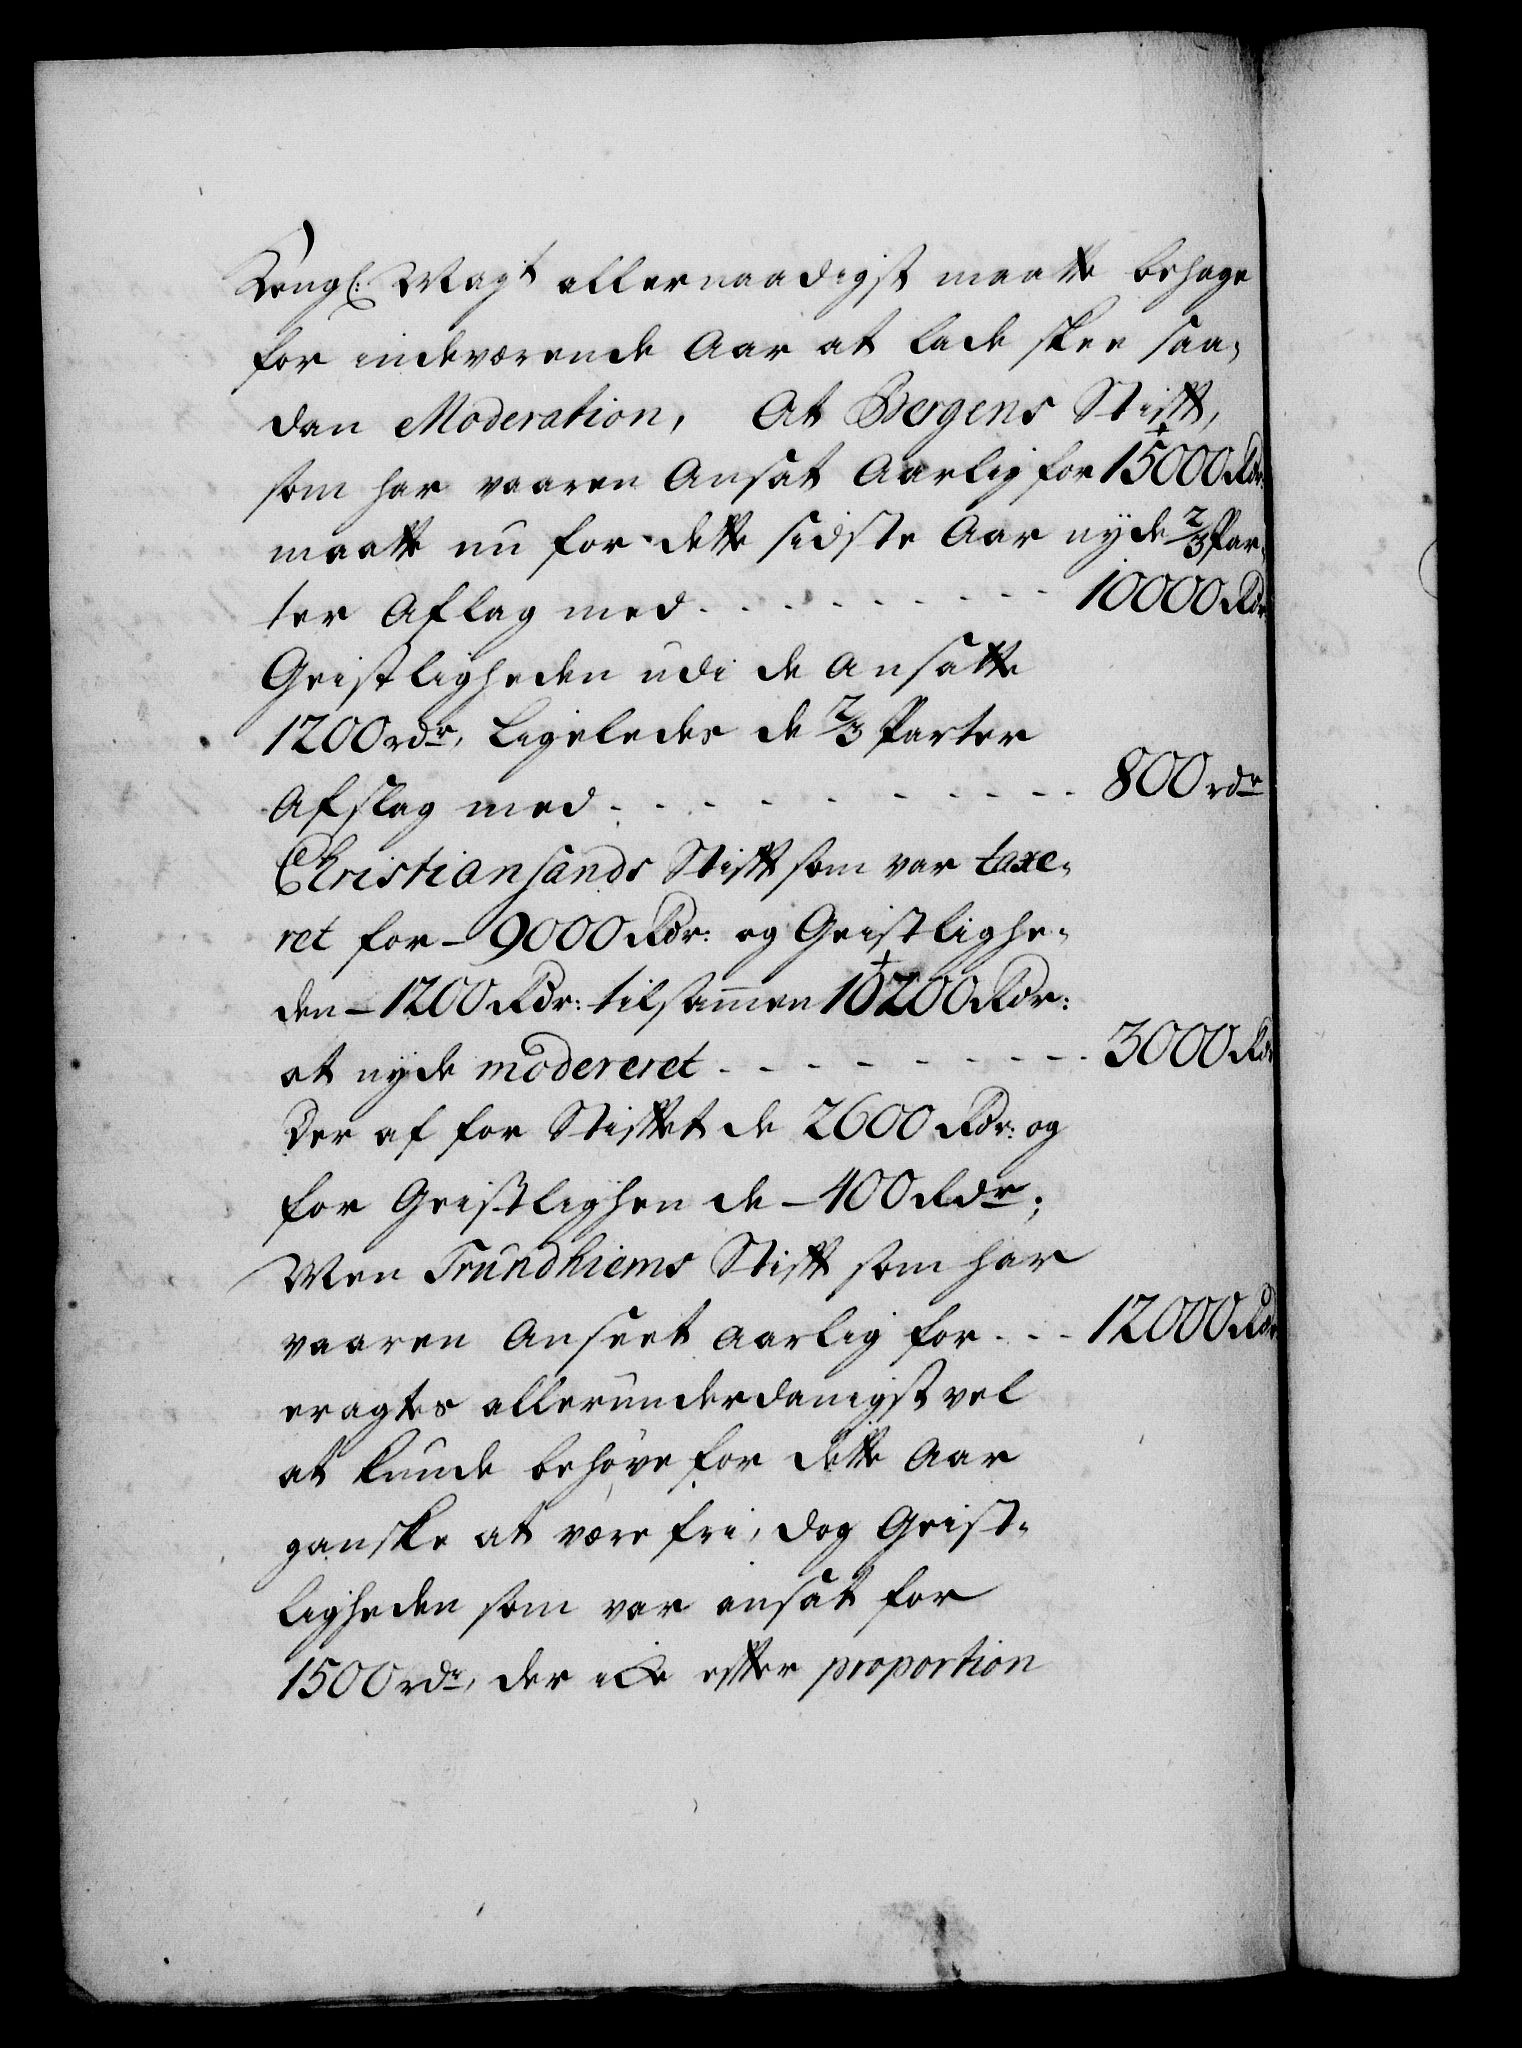 Kongl: Mayt allernaadigst maatte behage
for indeværende Aar at lade skee saa-
dan Moderation, At Bergens Stift,
som har vaaren Ansat Aarlig for 15000 Rdr:
maatte nu for dette sidste Aar nyde 2/3 Par-
ter Aflag med . . . . . . . . . . 10000 Rdr
Geistligheden udi de Ansatte
1200 rdr, Ligeledes de 2/3 Parter
Afslag med . . . . . . . . . . 800 rdr
Christiansands Stift som var taxe-
ret for - 9000 Rdr: og Geistlighe-
den - 1200 Rdr: tilsammen 10200 Rdr:
at nyde modereret - - - - - - - - 3000 Rdr
Der af for Stiftet de 2600 Rdr: og
for Geistlighen de - 400 Rdr;
Men Trundhiems Stift som har
vaaren Anseet Aarlig for . . . 12000 Rdr
eragtes allerunderdanigst vel
at kunde behøve for dette Aar
ganske at være fri, dog Geist-
ligheden som var ansat for
1500 rdr, der icke efter proportion